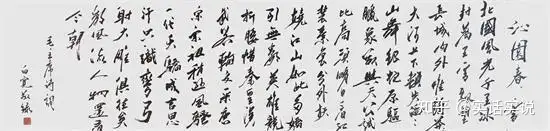 沁园春 雪
北国风光千里冰
封万里雪飘望
长城内外惟余莽莽
大河上下顿失滔滔
山舞银蛇原驰
蜡象欲与天公试
比高须晴日看红
装素裹分外妖
娆江山如此多娇
引无数英雄竞
折腰惜秦皇汉
武略输文采唐
宗宋祖稍逊风骚
一代天骄成吉思
汗只识弯弓
射大雕俱往矣
数风流人物还看
今朝
毛主席诗词
知乎 @实话实说